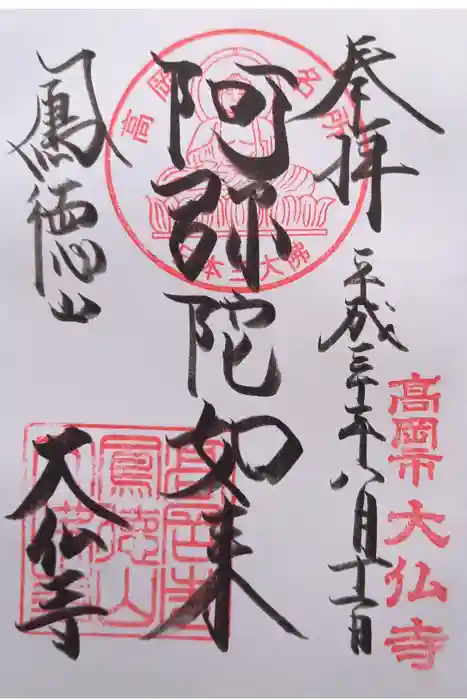 奉拝
平成三十年八月十一日
高岡市大仏寺
高岡名所
日本三大佛
阿弥陀如来
鳳徳山
大仏寺
鳳徳山